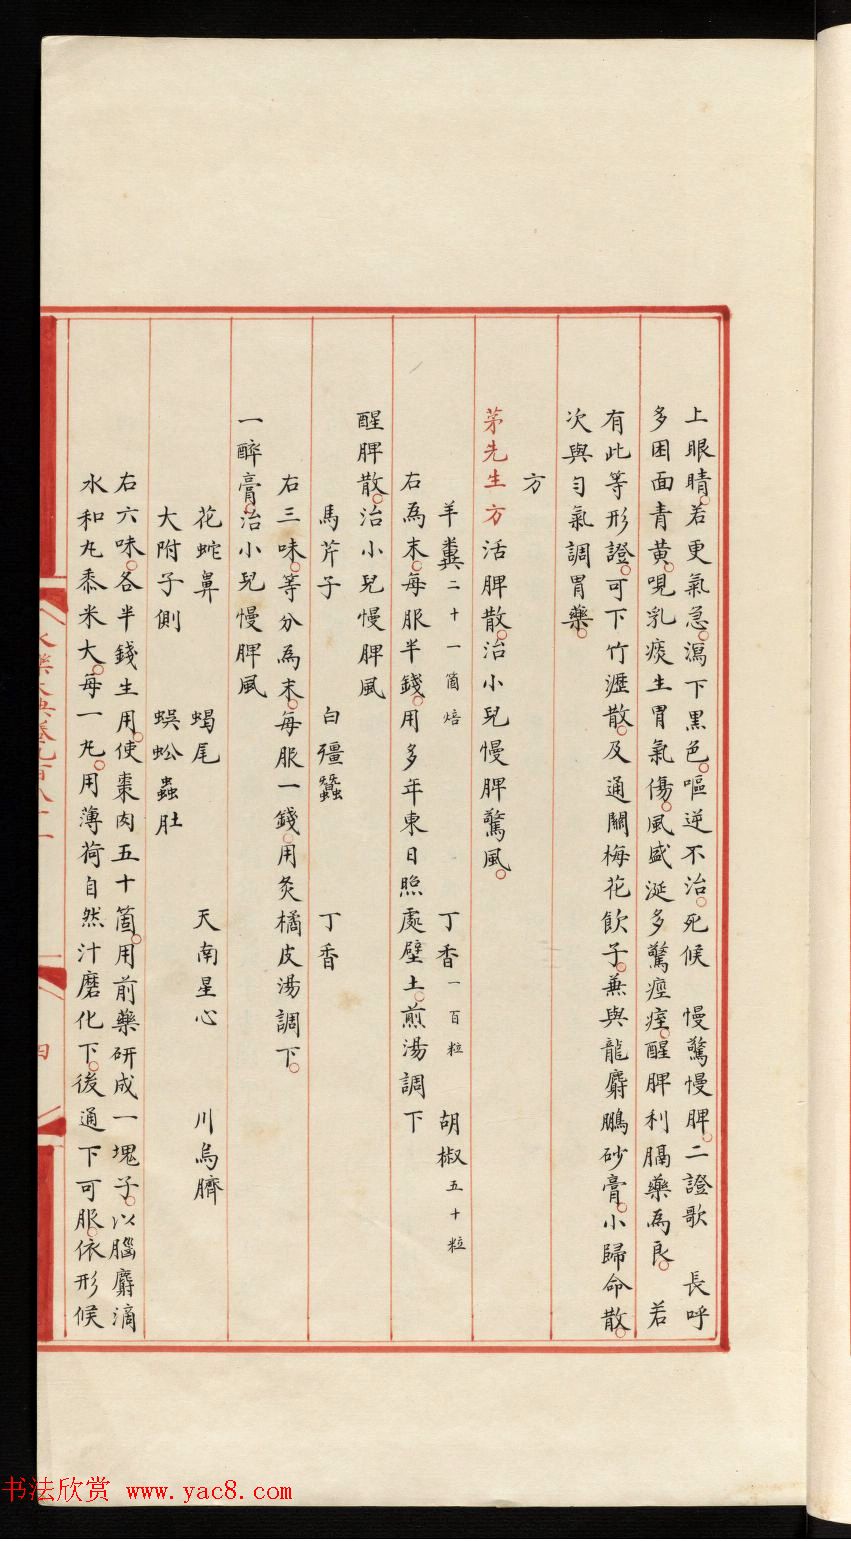 上眼睛。若更氣急。瀉下黑色。嘔逆不治。死候　慢驚慢脾。二證歌　長呼
多困面青黃。哯乳痰生胃氣傷。風盛涎多驚瘂瘂。醒脾利膈藥為良。　若
有此等形證。可下竹瀝散。及通關梅花飲子。兼與龍麝鵬砂膏。小歸命散。
次與勻氣調胃藥。
方
茅先生方活脾散。治小兒慢脾驚風。
羊糞二十一箇焙　丁香一百粒　胡椒五十粒
右為末。每服半錢。用多年東日照處壁土。煎湯調下
醒脾散。治小兒慢脾風
馬芹子　白殭蠶　丁香
右三味。等分為末。每服一錢。用炙橘皮湯調下。
一醉膏。治小兒慢脾風
花蛇鼻　蝎尾　天南星心　川烏臍
大附子側　蜈蚣蟲肚
右六味。各半錢生用。使棗肉五十箇。用前藥研成一塊子。以腦麝滴
水和丸黍米大。每一丸。用薄荷自然汁磨化下。後通下可服。依形候
永樂大典卷九百八十一
四
书法欣赏 www.yac8.com